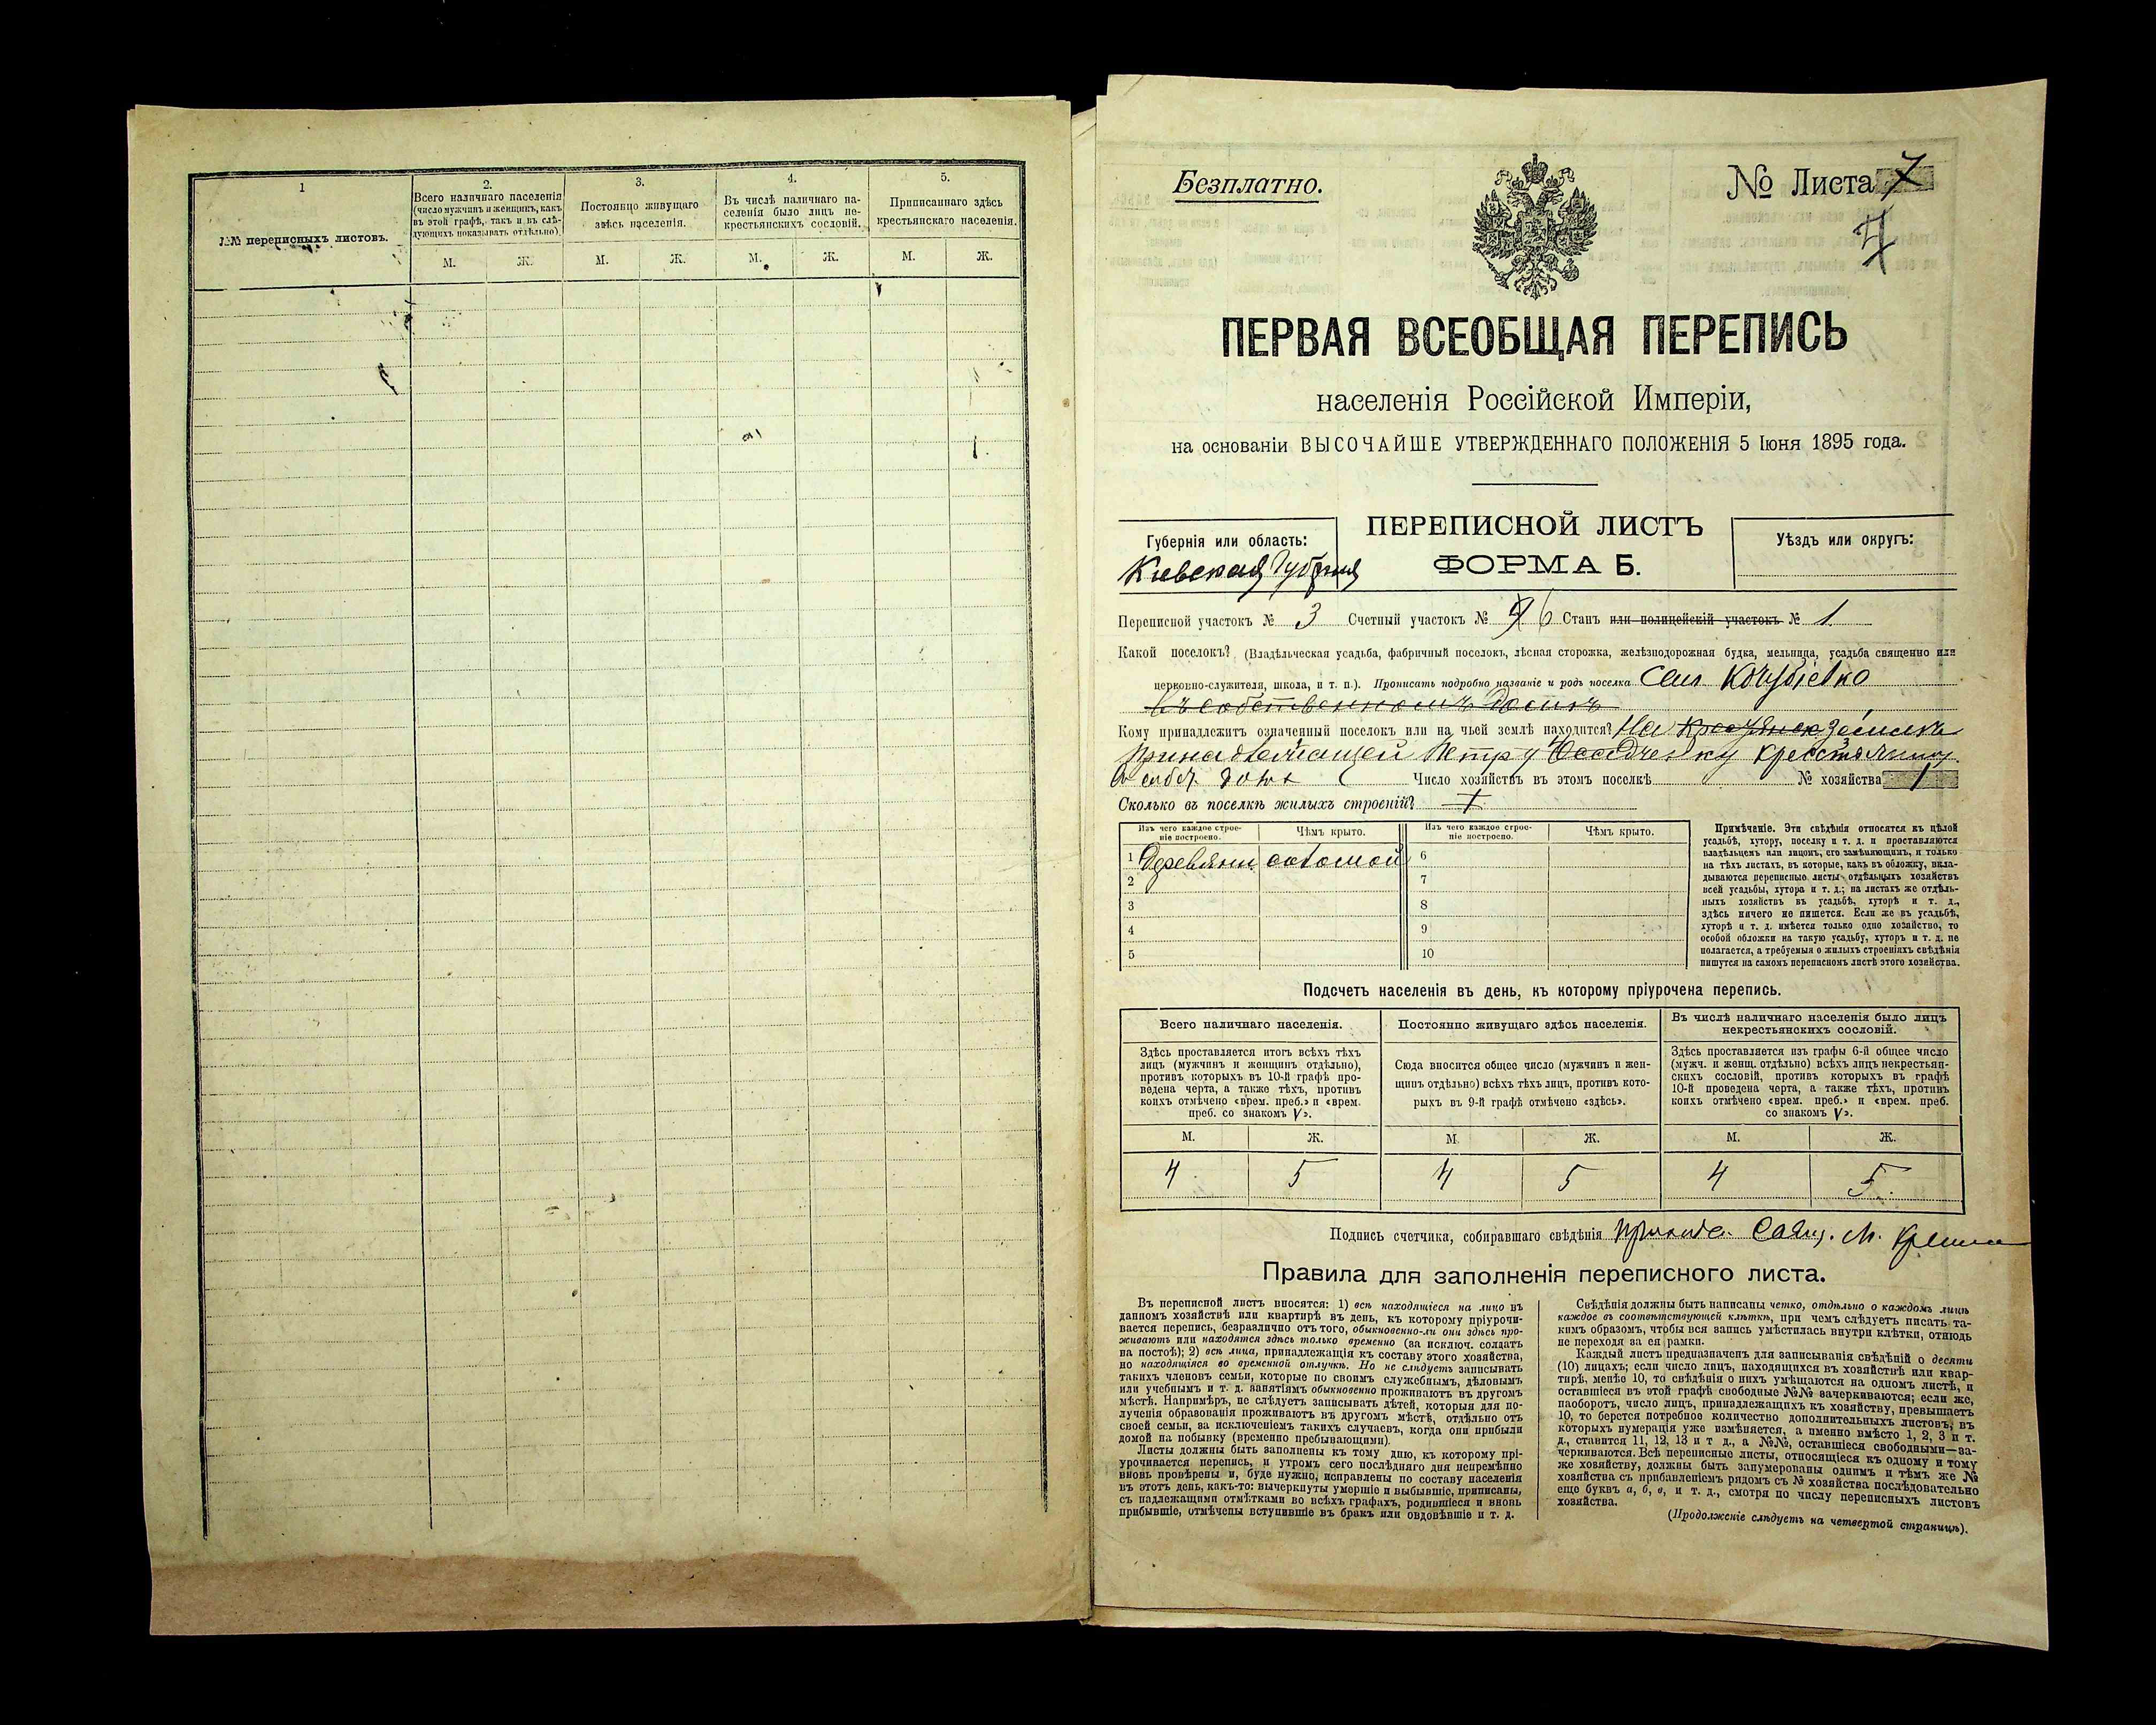 1
№№ переписныхъ листовъ.
2.
Всего наличнаго населенія
(число мужчинъ и женщинъ, какъ
въ этой графѣ, такъ и въ слѣ-
дующихъ показывать отдѣльно).
3.
Постоянно живущаго
здѣсь населенія.
4.
Въ числѣ наличнаго на-
селенія было лицъ не-
крестьянскихъ сословій.
5.
Приписаннаго здѣсь
крестьянскаго населенія.
М. Ж. М. Ж. М. Ж. М. Ж.
Безплатно.
№ Листа 7
7
ПЕРВАЯ ВСЕОБЩАЯ ПЕРЕПИСЬ
населенія Россійской Имперіи,
на основаніи ВЫСОЧАЙШЕ УТВЕРЖДЕННАГО ПОЛОЖЕНІЯ 5 Іюня 1895 года.
ПЕРЕПИСНОЙ ЛИСТЪ
ФОРМА Б.
Губернія или область:
Киевская
Уѣздъ или округъ:
Переписной участокъ № 3 Счетный участокъ № 6 Станъ или полицейскій участокъ № 1
Какой поселокъ? (Владѣльческая усадьба, фабричный поселокъ, лѣсная сторожка, желѣзнодорожная будка, мельница, усадьба священно или
церковно-служителя, школа, и т. п.). Прописать подробно названіе и родъ поселка
въ собственномъ домѣ
Кому принадлежитъ означенный поселокъ или на чьей землѣ находится? На землѣ
принадлежащей Петру
Число хозяйствъ въ этомъ поселкѣ № хозяйства 1
Сколько въ поселкѣ жилыхъ строеній? 1
Изъ чего каждое строе-
ніе построено.
Чѣмъ крыто.
Изъ чего каждое строе-
ніе построено.
Чѣмъ крыто.
1 Деревянн. соломой 6
2 7
3 8
4 9
5 10
Примѣчаніе. Эти свѣдѣнія относятся къ цѣлой
усадьбѣ, хутору, поселку и т. д. и проставляются
владѣльцемъ или лицомъ, его замѣняющимъ, и только
на тѣхъ листахъ, въ которые, какъ въ обложку, вкла-
дываются переписные листы отдѣльныхъ хозяйствъ
всей усадьбы, хутора и т. д.; на листахъ же отдѣль-
ныхъ хозяйствъ въ усадьбѣ, хуторѣ и т. д.,
здѣсь ничего не пишется. Если же въ усадьбѣ,
хуторѣ и т. д. имѣется только одно хозяйство, то
особой обложки на такую усадьбу, хуторъ и т. д. не
полагается, а требуемыя о жилыхъ строеніяхъ свѣдѣнія
пишутся на самомъ переписномъ листѣ этого хозяйства.
Подсчетъ населенія въ день, къ которому пріурочена перепись.
Всего наличнаго населенія.
Здѣсь проставляется итогъ всѣхъ тѣхъ
лицъ (мужчинъ и женщинъ отдѣльно),
противъ которыхъ въ 10-й графѣ про-
ведена черта, а также тѣхъ, противъ
коихъ отмѣчено «врем. преб.» и «врем.
преб. со знакомъ V».
Постоянно живущаго здѣсь населенія.
Сюда вносится общее число (мужчинъ и жен-
щинъ отдѣльно) всѣхъ тѣхъ лицъ, противъ кото-
рыхъ въ 9-й графѣ отмѣчено «здѣсь».
Въ числѣ наличнаго населенія было лицъ
некрестьянскихъ сословій.
Здѣсь проставляется изъ графы 6-й общее число
(мужч. и женщ. отдѣльно) всѣхъ лицъ некрестьян-
скихъ сословій, противъ которыхъ въ графѣ
10-й проведена черта, а также тѣхъ, противъ
коихъ отмѣчено «врем. преб.» и «врем. преб.
со знакомъ V».
М. Ж. М. Ж. М. Ж.
4 5 4 5 4 5
Подпись счетчика, собиравшаго свѣдѣнія
Правила для заполненія переписного листа.
Въ переписной листъ вносятся: 1) всѣ находящіеся на лицо въ
данномъ хозяйствѣ или квартирѣ въ день, къ которому пріурочи-
вается перепись, безразлично отъ того, обыкновенно-ли они здѣсь про-
живаютъ или находятся здѣсь только временно (за исключ. солдатъ
на постоѣ); 2) всѣ лица, принадлежащія къ составу этого хозяйства,
но находящіяся во временной отлучкѣ. Но не слѣдуетъ записывать
такихъ членовъ семьи, которые по своимъ служебнымъ, дѣловымъ
или учебнымъ и т. д. занятіямъ обыкновенно проживаютъ въ другомъ
мѣстѣ. Напримѣръ, не слѣдуетъ записывать дѣтей, которыя для по-
лученія образованія проживаютъ въ другомъ мѣстѣ, отдѣльно отъ
своей семьи, за исключеніемъ такихъ случаевъ, когда они прибыли
домой на побывку (временно пребывающими).
Листы должны быть заполнены къ тому дню, къ которому прі-
урочивается перепись, и утромъ сего послѣдняго дня непремѣнно
вновь провѣрены и, буде нужно, исправлены по составу населенія
въ этотъ день, какъ-то: вычеркнуты умершіе и выбывшіе, приписаны,
съ надлежащими отмѣтками во всѣхъ графахъ, родившіеся и вновь
прибывшіе, отмѣчены вступившіе въ бракъ или овдовѣвшіе и т. д.
Свѣдѣнія должны быть написаны четко, отдѣльно о каждомъ лицѣ
каждое въ соотвѣтствующей клѣткѣ, при чемъ слѣдуетъ писать та-
кимъ образомъ, чтобы вся запись умѣстилась внутри клѣтки, отнюдь
не переходя за ея рамки.
Каждый листъ предназначенъ для записыванія свѣдѣній о десяти
(10) лицахъ; если число лицъ, находящихся въ хозяйствѣ или квар-
тирѣ, менѣе 10, то свѣдѣнія о нихъ умѣщаются на одномъ листѣ, и
оставшіеся въ этой графѣ свободные №№ зачеркиваются; если же,
наоборотъ, число лицъ, принадлежащихъ къ хозяйству, превышаетъ
10, то берется потребное количество дополнительныхъ листовъ, въ
которыхъ нумерація уже измѣняется, а именно вмѣсто 1, 2, 3 и т.
д., ставится 11, 12, 13 и т д., а №№, оставшіеся свободными—за-
черкиваются. Всѣ переписные листы, относящіеся къ одному и тому
же хозяйству, должны быть занумерованы однимъ и тѣмъ же №
хозяйства съ прибавленіемъ рядомъ съ № хозяйства послѣдовательно
еще буквъ а, б, в, и т. д., смотря по числу переписныхъ листовъ
хозяйства.
(Продолженіе слѣдуетъ на четвертой страницѣ).